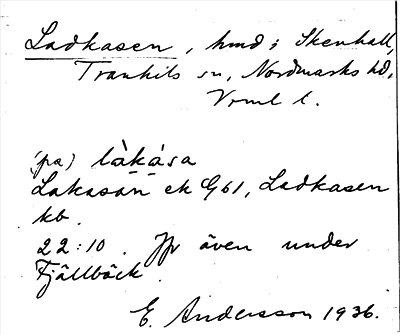 Ladkasen, hmd i Skenhall,
Trankils sn, Nordmarks hd,
Vrml l.
(på) làkása
Lakasan ek G61, Ladkasen
kb.
22:10. Jfr även under
Fjällbäck.
E. Andersson 1936.